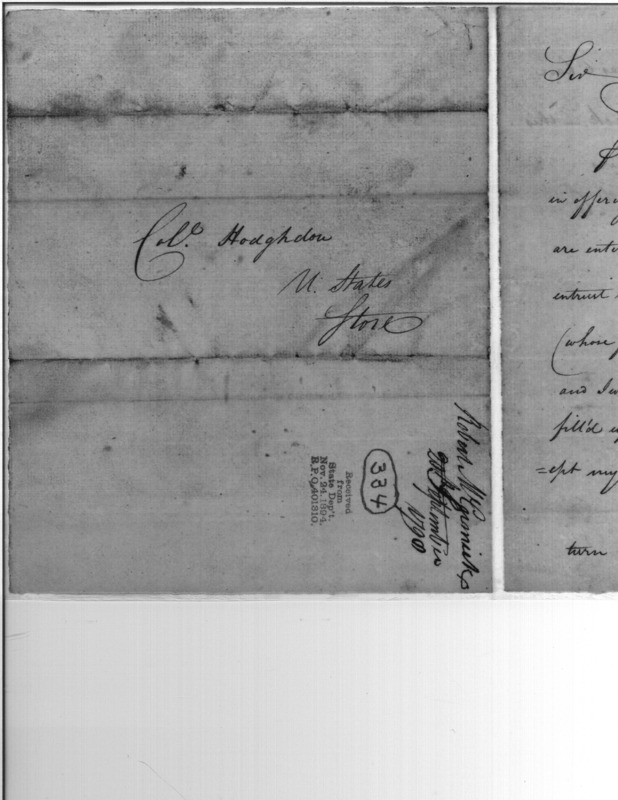 Colo. Hodghdon
U. States
Store
Robert McCormick
20 September
1790
334
Received
from
State Dep't.
Nov. 24, 1894.
R.P.O. 401310.
Sir
in offeri
are ente
entrust
(whose
and I w
fill'd u
=ept my
turn